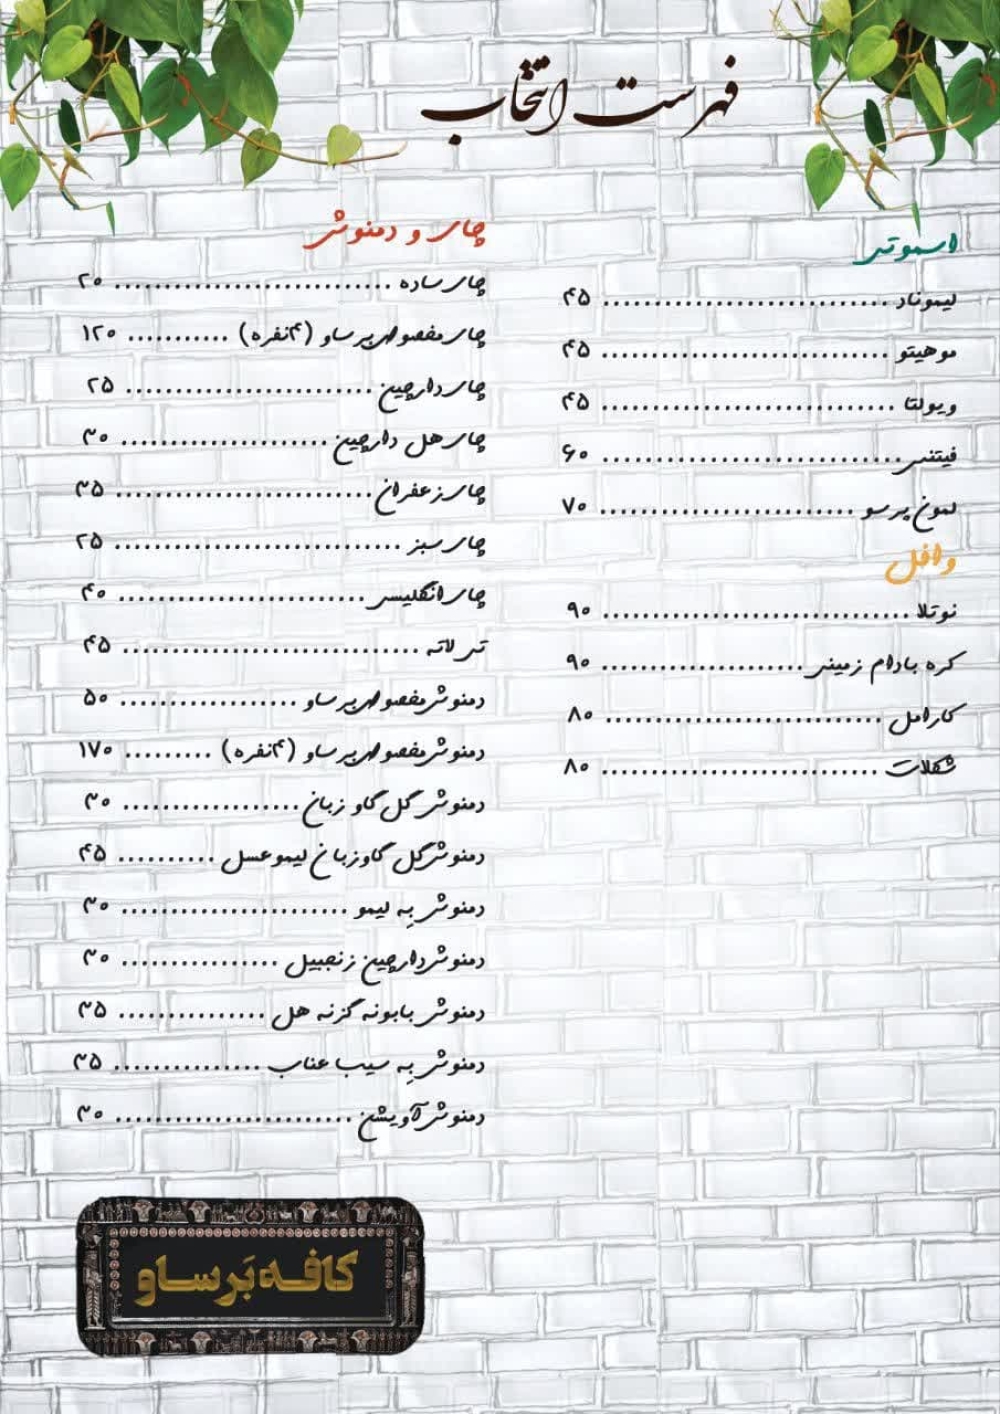 فهرست انتخاب
اسموتی
لیموناد ............................ ۴۵
موهیتو ............................. ۴۵
ویولتا .............................. ۴۵
فیتنس ............................... ۶۰
لمون پرسو .......................... ۷۰
وافل
نوتلا ............................... ۹۰
کره بادام زمینی ..................... ۹۰
کارامل ............................ ۸۰
شکلات ............................ ۸۰
چای و دمنوش
چای ساده ............................ ۲۰
چای مخصوص برساو (۴نفره) ........... ۱۲۰
چای دارچین ......................... ۲۵
چای هل دارچین ..................... ۳۰
چای زعفران .......................... ۳۵
چای سبز ............................. ۲۵
چای انگلیسی ......................... ۴۰
تی لاته .............................. ۴۵
دمنوش مخصوص برساو .................. ۵۰
دمنوش مخصوص برساو (۴نفره) ......... ۱۷۰
دمنوش گل گاو زبان .................. ۳۰
دمنوش گل گاوزبان لیمو عسل .......... ۴۵
دمنوش بِه لیمو ....................... ۳۰
دمنوش دارچین زنجبیل ................ ۳۰
دمنوش بابونه گزنه هل ............... ۳۵
دمنوش بِه سیب عناب ............... ۳۵
دمنوش آویشن ........................ ۳۰
کافه بَرساو